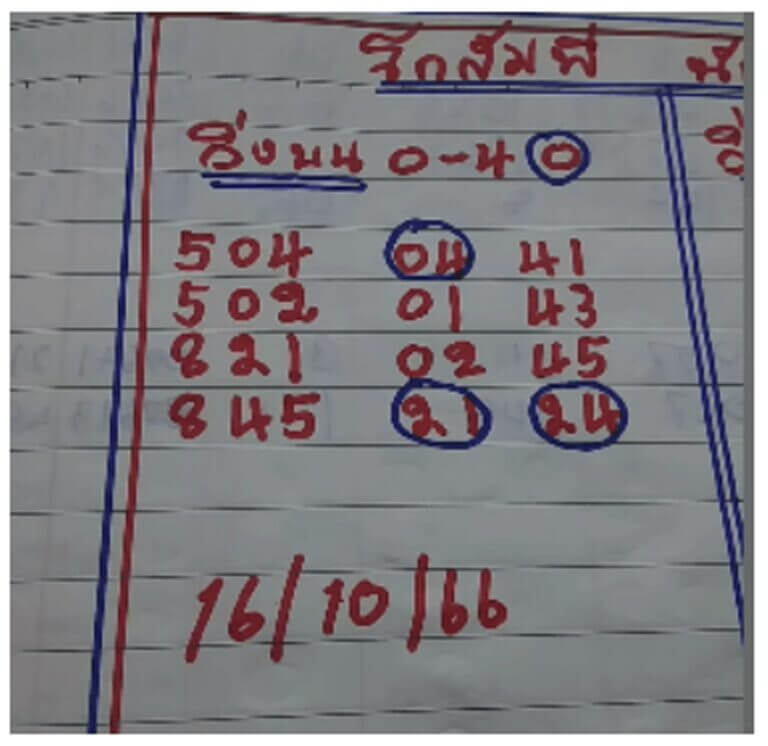 วิ่งบน 0-4 0
504 04 41
502 01 43
821 02 45
845 21 24
16/10/66